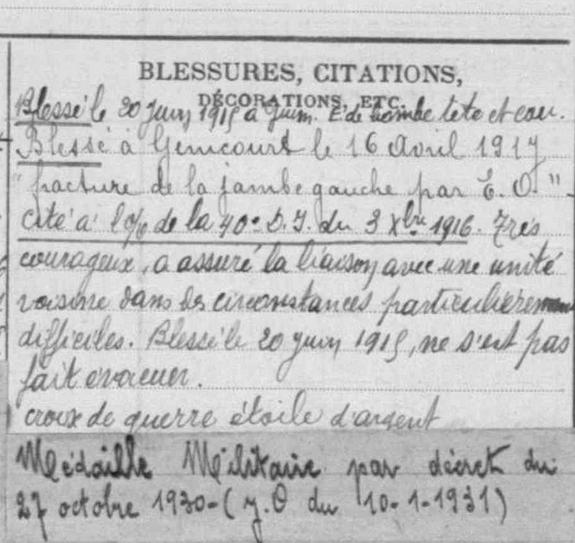 BLESSURES, CITATIONS,
DÉCORATIONS, ETC.
Blessé le 20 juin 1915 à E. de bombe tete et cou.
Blessé à Gernicourt le 16 Avril 1917
"fracture de la jambe gauche par E. O."
Cité à l'O/ de la 40e D.I. du 3 Xbre 1916. Très
courageux, a assuré la liaison avec une unité
voisine dans des circonstances particulièrement
difficiles. Blessé le 20 juin 1915, ne s'est pas
fait evacuer.
croix de guerre étoile d'argent
Médaille Militaire par décret du
27 octobre 1930-(J.O du 10-1-1931)